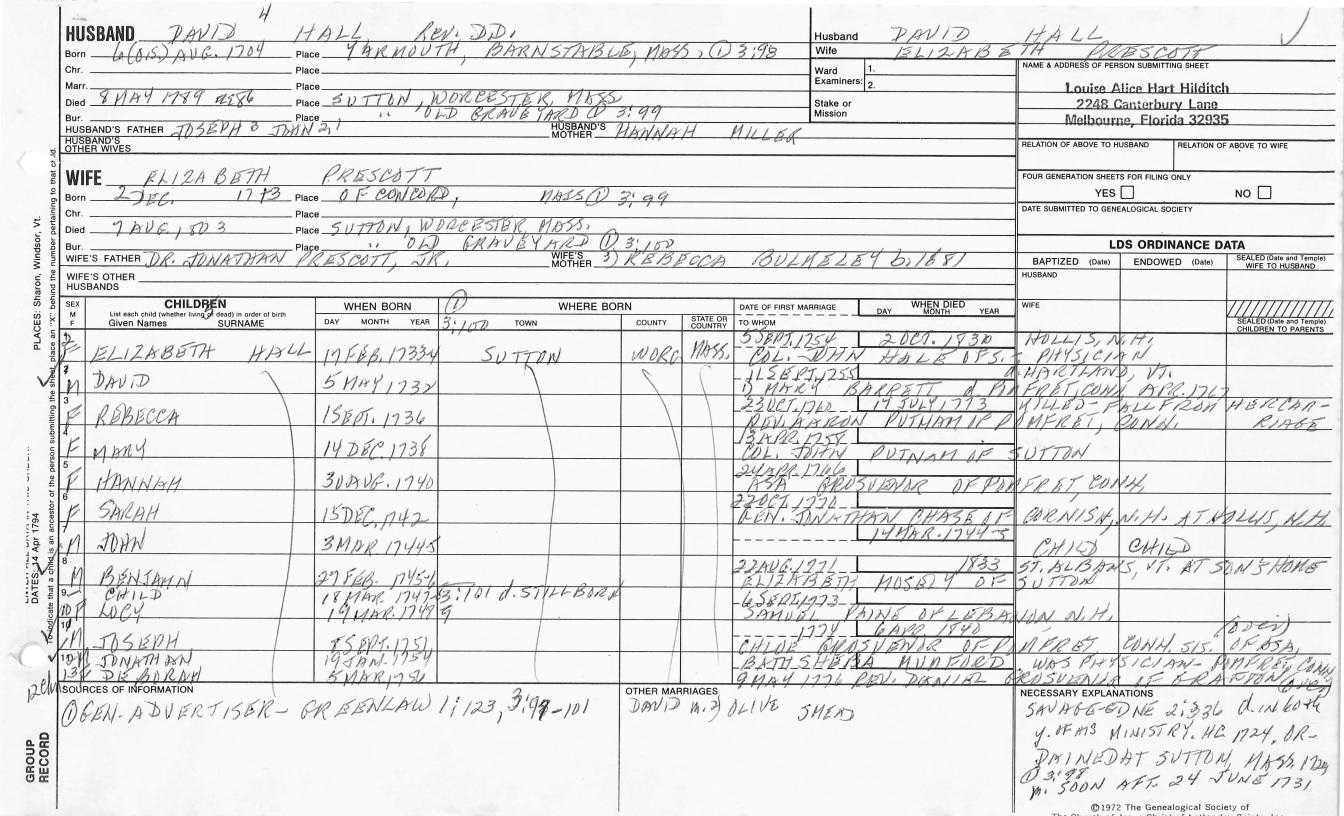 4
HUSBAND DAVID HALL REV. D.D.
Born 6(O.S.) AUG. 1704 Place YARMOUTH, BARNSTABLE, MASS. ① 3:98
Chr. Place
Marr. Place
Died 8 MAY 1789 Place SUTTON, WORCESTER, MASS
Bur. Place " OLD GRAVEYARD ① 3:99
HUSBAND'S FATHER JOSEPH 3 JOHN 2,1 HUSBAND'S MOTHER HANNAH MILLER
HUSBAND'S OTHER WIVES
WIFE ELIZABETH PRESCOTT
Born 2 DEC. 1713 Place OF CONCORD, MASS ① 3:99
Chr. Place
Died 7 AUG, 1803 Place SUTTON, WORCESTER, MASS.
Bur. Place " OLD GRAVEYARD ① 3:100
WIFE'S FATHER DR. JONATHAN PRESCOTT, JR. WIFE'S MOTHER 3) REBECCA BULKELEY b. 1681
WIFE'S OTHER HUSBANDS
Husband DAVID HALL
Wife ELIZABETH PRESCOTT
Ward Examiners: 1.
2.
Stake or Mission
NAME & ADDRESS OF PERSON SUBMITTING SHEET
Louise Alice Hart Hilditch
2248 Canterbury Lane
Melbourne, Florida 32935
RELATION OF ABOVE TO HUSBAND RELATION OF ABOVE TO WIFE
FOUR GENERATION SHEETS FOR FILING ONLY
YES NO
DATE SUBMITTED TO GENEALOGICAL SOCIETY
LDS ORDINANCE DATA
BAPTIZED (Date) ENDOWED (Date) SEALED (Date and Temple) WIFE TO HUSBAND
HUSBAND
WIFE
SEALED (Date and Temple) CHILDREN TO PARENTS
SEX M F CHILDREN List each child (whether living or dead) in order of birth Given Names SURNAME WHEN BORN DAY MONTH YEAR ① 3:100 WHERE BORN TOWN COUNTY STATE OR COUNTRY DATE OF FIRST MARRIAGE TO WHOM WHEN DIED DAY MONTH YEAR
F ELIZABETH HALL 17 FEB. 1733-4 SUTTON WORC MASS. 5 SEPT. 1754 2 OCT. 1830 HOLLIS, N.H.
COL. JOHN HALE PHYSICIAN
M DAVID 5 MAY 1732 11 SEPT. 1755 HARTLAND, VT.
1) MARY BARRETT d. POMFRET, CONN, APR. 1767
3 F REBECCA 1 SEPT. 1736 23 OCT. 1760 17 JULY 1773 KILLED-FALL FROM HER CARRIAGE
REV. AARON PUTNAM OF POMFRET, CONN.
4 F MARY 14 DEC. 1738 13 APR. 1758
COL. JOHN PUTNAM OF SUTTON
5 F HANNAH 30 AUG. 1740 24 APR. 1766
ASA GROSVENOR OF POMFRET, CONN.
6 F SARAH 15 DEC. 1742 22 OCT. 1770
GEN. JONATHAN CHASE OF CORNISH, N.H. AT HOLLIS, N.H.
7 M JOHN 3 MAR 1744-5 14 MAR. 1744-5 CHILD CHILD
8 M BENJAMN 27 FEB. 1745-6 22 AUG. 1771 1833 ST. ALBANS, VT. AT SON'S HOME
ELIZABETH MOSELY OF SUTTON
9 CHILD 18 MAR. 1747-8 3:101 d. STILLBORN
10 F LOCY 19 MAR. 1748-9 6 SEPT. 1773
SAMUEL PAINE OF LEBANON, N.H.
M JOSEPH 8 SEPT. 1751 1774 6 APR. 1840
CHLOE GROSVENOR OF POMFRET CONN. SIS. OF ASA
M JONATHAN 19 JAN. 1754 BATHSHEBA MUMFORD WAS PHYSICIAN - POMFRET, CONN
13 F DEBORAH 5 MAR 1756 9 MAY 1776 REV. DANIEL GROSVENOR OF GRAFTON (OVER)
SOURCES OF INFORMATION
① GEN. ADVERTISER - GREENLAW 1:123, 3:98-101
OTHER MARRIAGES
DAVID m. 2) OLIVE SMEAD
NECESSARY EXPLANATIONS
SAVAGE-GDNE 2:336 d. in 60th
y. of his MINISTRY. HC 1724, OR-
DAINED AT SUTTON, MASS 1729
① 3:98
m. SOON AFT. 24 JUNE 1731
©1972 The Genealogical Society of
PLACES: Sharon, Windsor, Vt.
DATES: 14 Apr 1794
To indicate that a child is an ancestor of the person submitting the sheet, place an "X" behind the number pertaining to that child.
GROUP RECORD